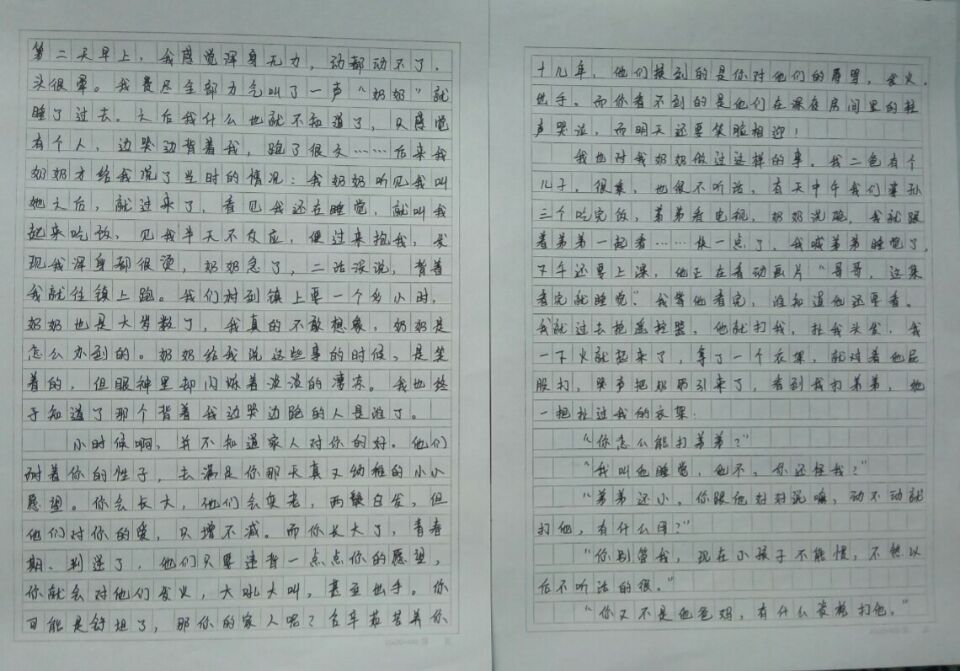 第二天早上，我感觉浑身无力，动都动不了，
头很晕。我费尽全部力气叫了一声“奶奶”就
睡了过去。之后我什么也就不知道了，只感觉
有个人，边哭边背着我，跑了很久……后来我
奶奶才给我说了当时的情况：我奶奶听见我叫
她之后，就过来了，看见我还在睡觉，就叫我
起来吃饭，见我半天不反应，便过来抱我，发
现我浑身都很烫，奶奶急了，二话没说，背着
我就往镇上跑。我们村到镇上要一个多小时，
奶奶也是大岁数了，我真的不敢想象，奶奶是
怎么办到的。奶奶给我说这些事的时候，是笑
着的，但眼神里却闪烁着淡淡的凄凉。我也终
于知道了那个背着我边哭边跑的人是谁了。
小时候啊，并不知道家人对你的好。他们
耐着你的性子，去满足你那天真又幼稚的小小
愿望。你会长大，他们会变老，两鬓白发，但
他们对你的爱，只增不减。而你长大了，青春
期、判逆了，他们只要违背一点点你的愿望，
你就会对他们发火，大吼大叫，甚至出手。你
可能是舒坦了，那你的家人呢？含辛茹苦养你
十几年，他们换到的是你对他们的辱骂，发火，
出手。而你看不到的是他们在深夜房间里的轻
声哭泣，而明天还要笑脸相迎！
我也对我奶奶做过这样的事。我二爸有个
儿子，很乖，也很不听话，有天中午我们婆孙
三个吃完饭，弟弟看电视，奶奶洗碗，我就跟
着弟弟一起看……快一点了，我喊弟弟睡觉了，
下午还要上课，他正在看动画片“哥哥，这集
看完就睡觉”。我等他看完，谁知道他还要看。
我就过去抢遥控器，他就打我，扯我头发，我
一下火就起来了，拿了一个衣架，就对着他屁
股打，哭声把奶奶引来了，看到我打弟弟，她
一把扯过我的衣架：
“你怎么能打弟弟？”
“我叫他睡觉，他不，你还怪我？”
“弟弟还小，你跟他好好说嘛，动不动就
打他，有什么用？”
“你别管我，现在小孩子不能惯，不然以
后不听话的很。”
“你又不是他爸妈，有什么资格打他。”